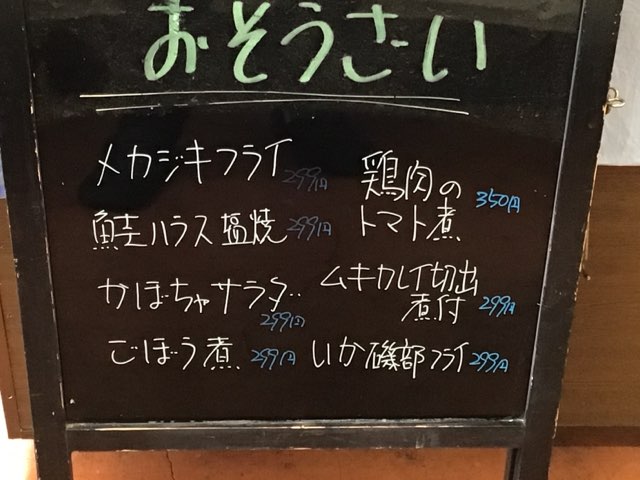 おそうさい
メカジキフライ 299円
鮭ハラス塩焼 299円
かぼちゃサラダ
299円
ごぼう煮 299円
鶏肉の
トマト煮 350円
ムキカレイ切出
煮付 299円
いか磯部フライ 299円